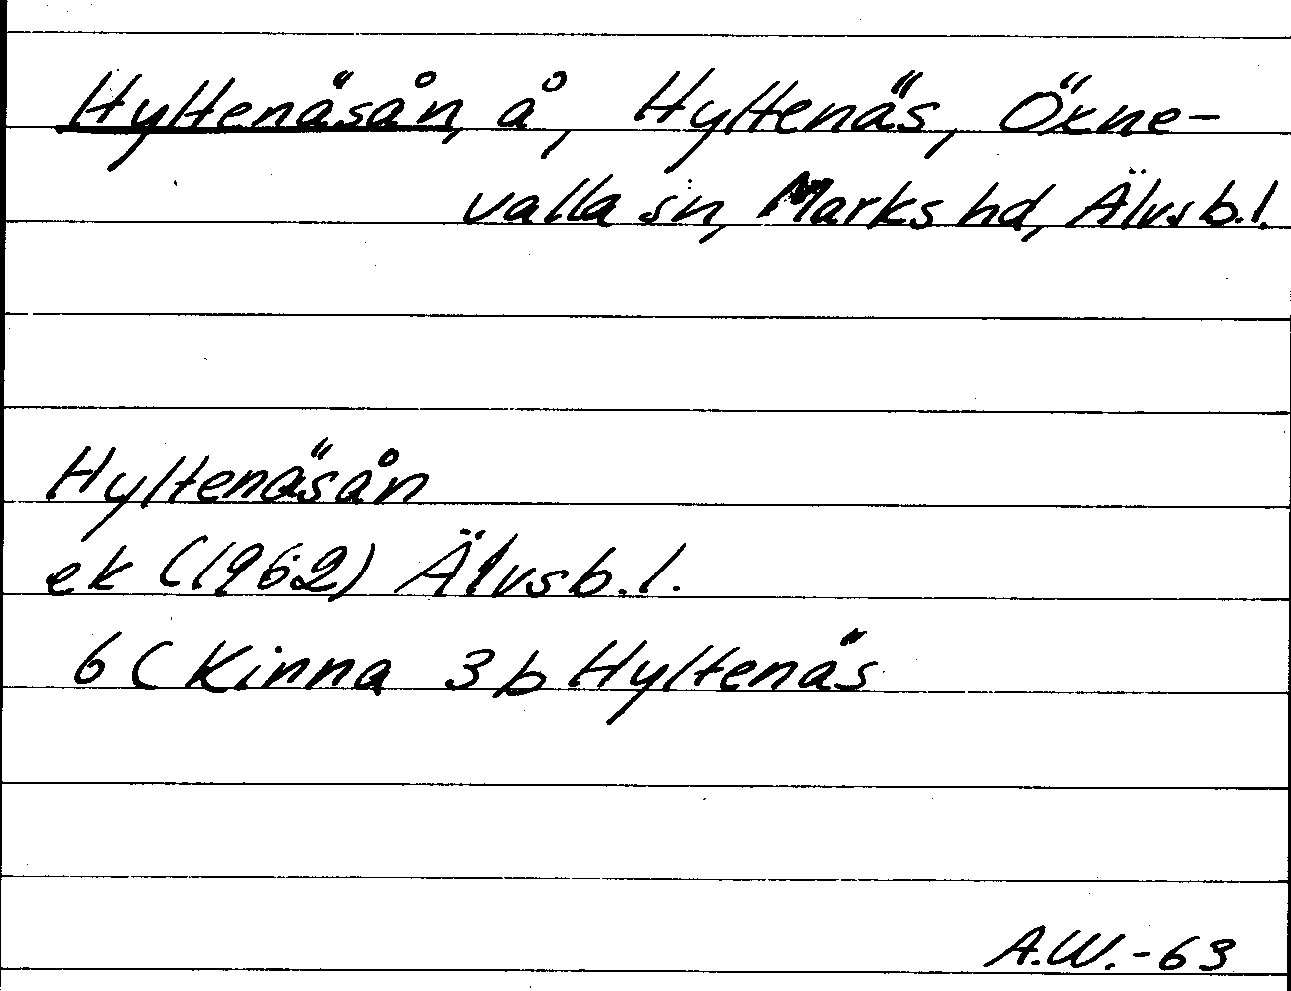 Hyltenäsån, å, Hyltenäs, Öxne-
valla sn, Marks hd, Älvsb.l.
Hyltenäsån
ek (1962) Älvsb.l.
6 C Kinna 3 b Hyltenäs
A.W.-63